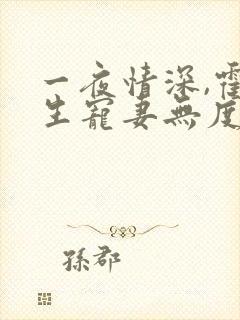 一夜情深,霍
生寵妻無度
孫郡